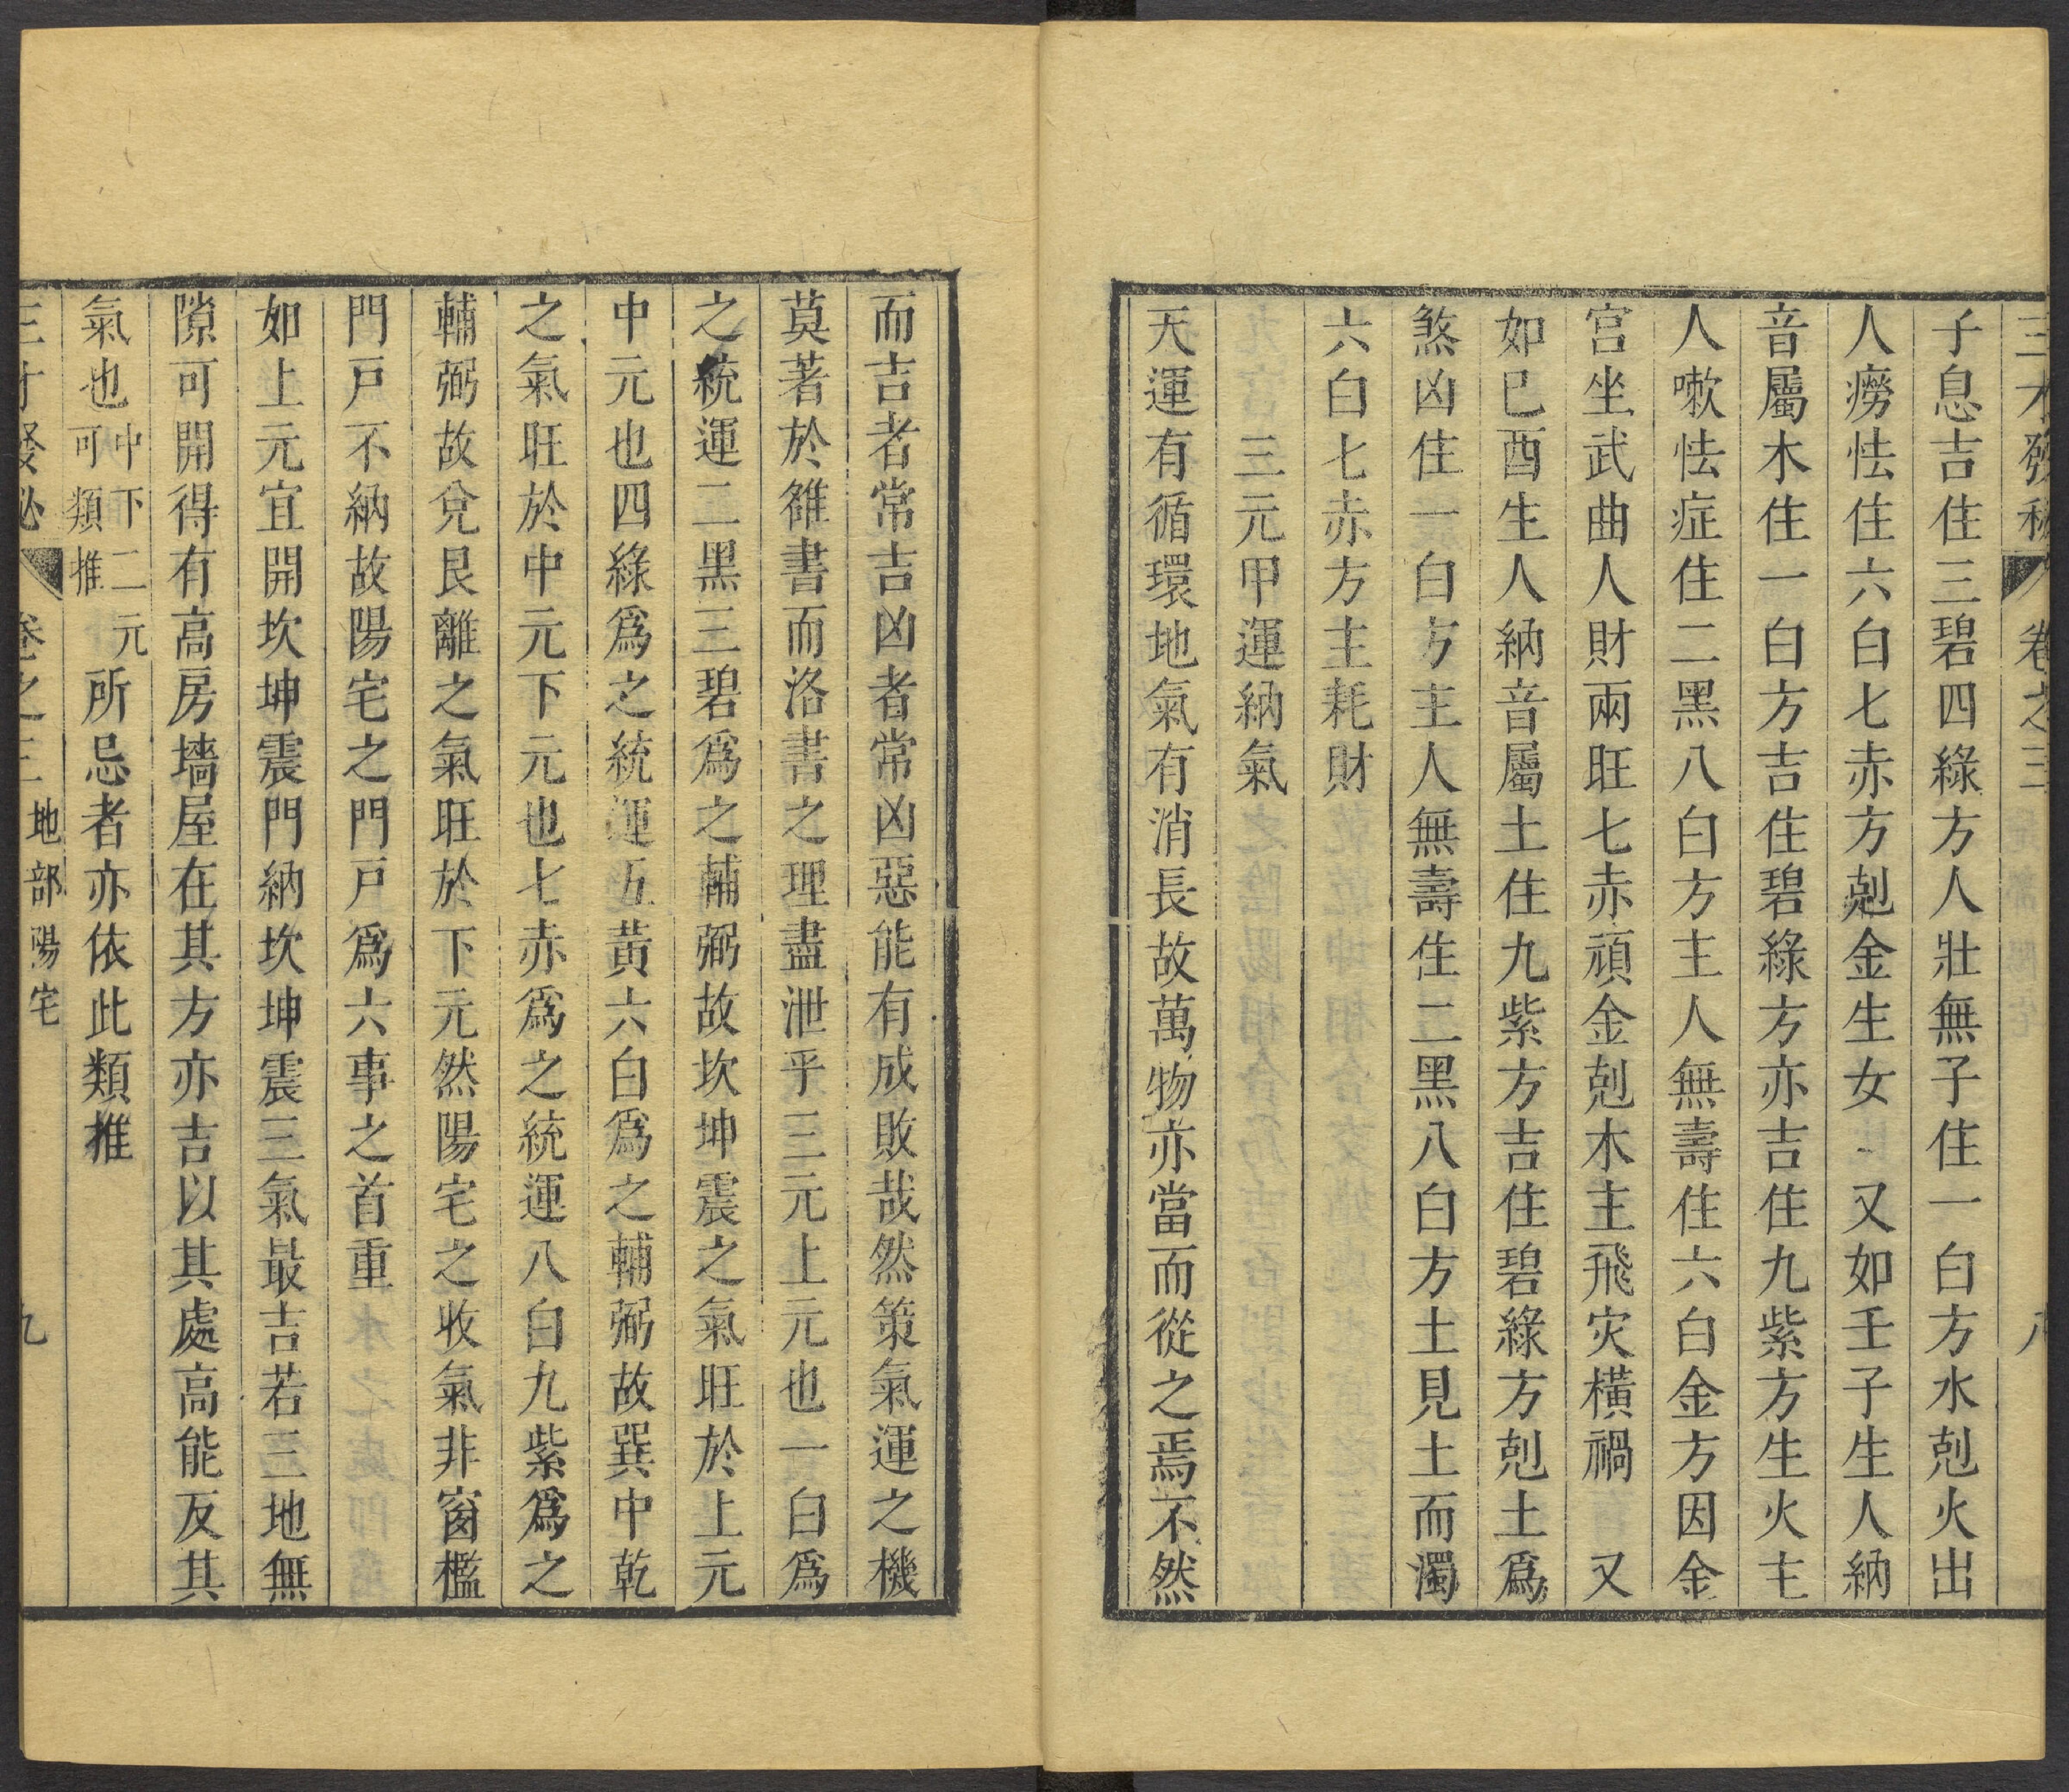 三才發秘 卷之三 八
子息吉住三碧四綠方人壯無子住一白方水剋火出
人癆怯住六白七赤方剋金生女又如壬子生人納
音屬木住一白方吉住碧綠方亦吉住九紫方生火主
人嗽怯症住二黑八白方主人無壽住六白金方因金
宮坐武曲人財兩旺七赤頑金剋木主飛灾橫禍 又
如巳酉生人納音屬土住九紫方吉住碧綠方剋土爲
煞凶住一白方主人無壽住二黑八白方土見土而濁
六白七赤方主耗財
三元甲運納氣
天運有循環地氣有消長故萬物亦當而從之焉不然
而吉者常吉凶者常凶惡能有成敗哉然策氣運之機
莫著於雒書而洛書之理盡泄乎三元上元也一白爲
之統運二黑三碧爲之輔弼故坎坤震之氣旺於上元
中元也四綠爲之統運五黃六白爲之輔弼故巽中乾
之氣旺於中元下元也七赤爲之統運八白九紫爲之
輔弼故兌艮離之氣旺於下元然陽宅之收氣非窗檻
門戸不納故陽宅之門戸爲六事之首重
如上元宜開坎坤震門納坎坤震三氣最吉若三地無
隙可開得有高房墻屋在其方亦吉以其處高能反其
氣也中下二元可類推所忌者亦依此類推
三才發秘 卷之三 地部 陽宅 九